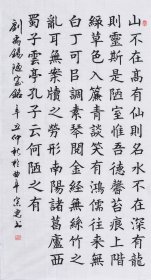 山不在高有仙則名水不在深有龍
則靈斯是陋室惟吾德馨苔痕上階
綠草色入簾青談笑有鴻儒往來無
白丁可以調素琴閱金經無絲竹之
亂耳無案牘之勞形南陽諸葛廬西
蜀子雲亭孔子云何陋之有
劉禹錫陋室銘 辛丑仲秋於曲阜